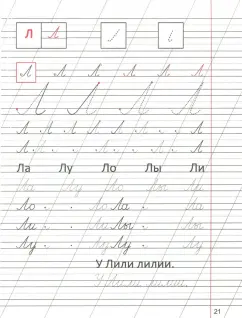 Л Л
Л Л Л Л Л Л Л
Л Л Л Л
Л Л Л Л Л Л Л Л Л
Л Л Л
Ла Лу Ло Лы Ли
Ла Лу Ло Лы Ли
Ло Ла
Ли Лы
Лу Лу
У Лили лилии.
У Лили лилии.
21